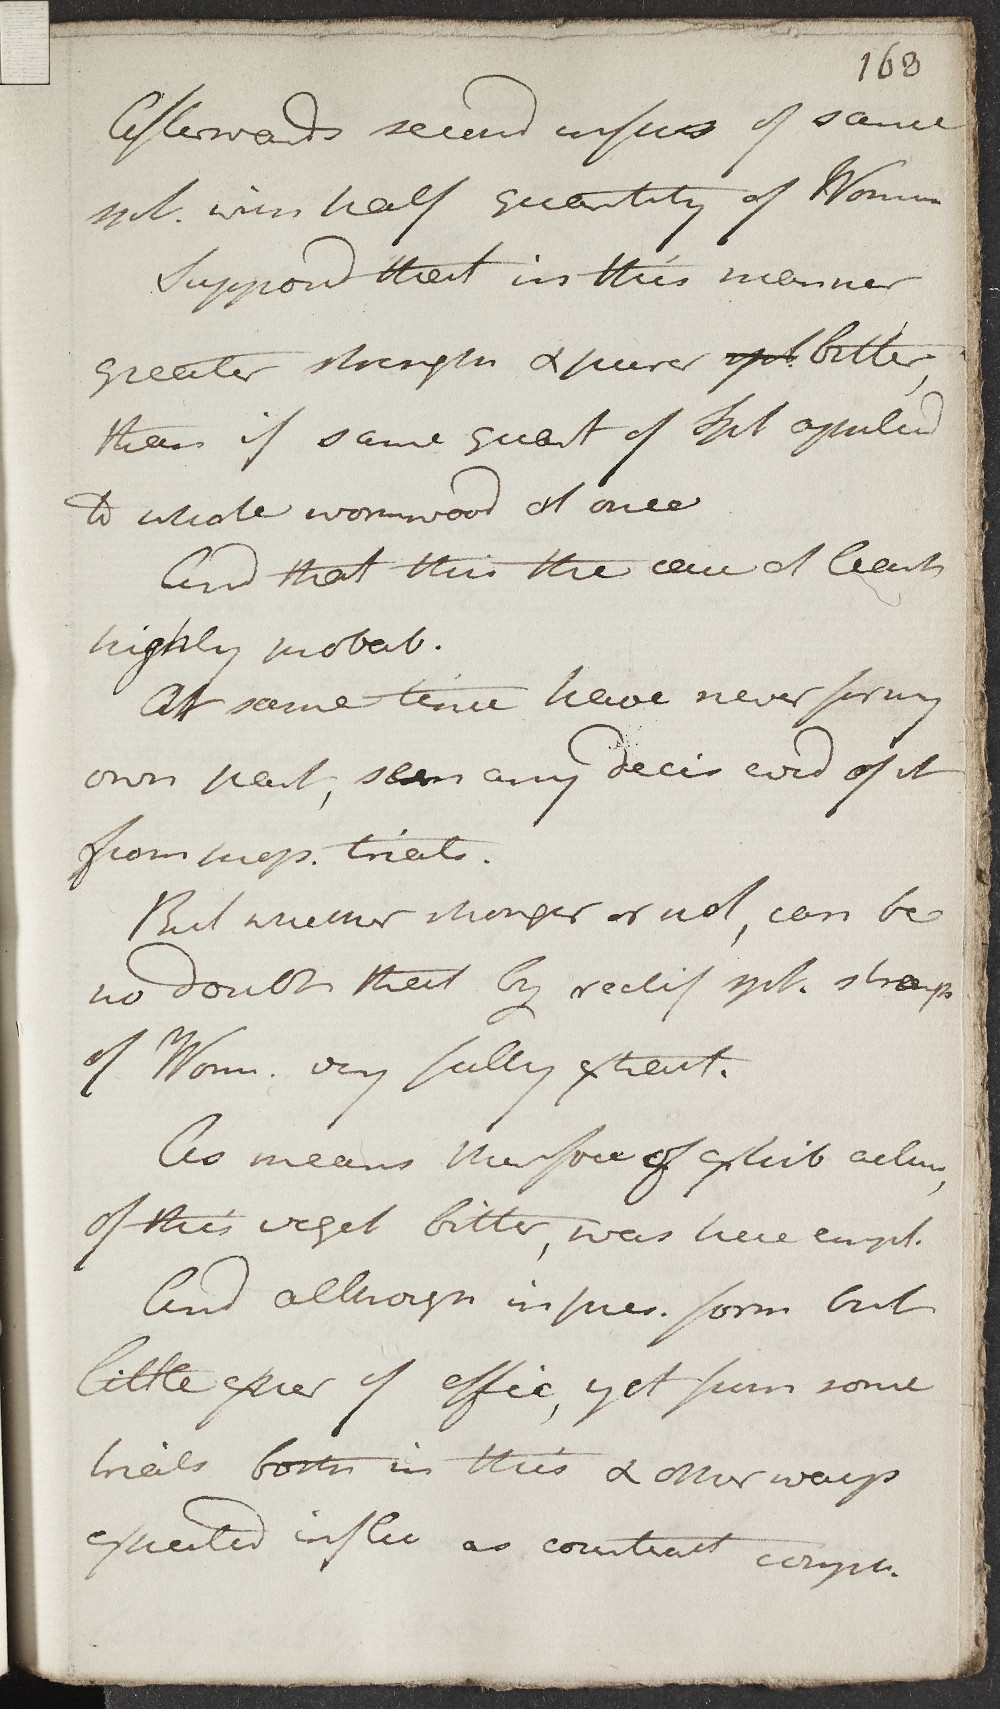 168
Afterwards second infus of same
spt. with half quantity of Worm
Supposd that in this manner
greater strength & purer spt. bitter,
than if same quant of Spt applied
to whole wormwood at once
And that this the case at least
highly probab.
At same time have never for my
own part, seen any decis evid of it
from rep. trials.
But whether stronger or not, can be
no doubt that by rectif spt. strength
of Worm. very fully extract.
As means therfore of exhib
of this veget bitter, was here empl.
And although in pres. form but
little exper of effic, yet from some
trials both in this & other ways
expected influ as